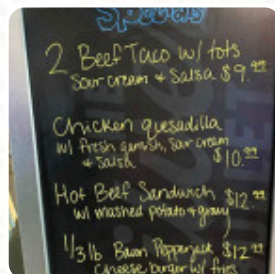 Specials
2 Beef Taco w/ tots
Sour cream & Salsa $9.99
Chicken quesadilla
w/ fresh garnish, Sour cream
& Salsa $10.99
Hot Beef Sandwich $12.99
w/ mashed potato & gravy
1/3 lb Bacon Pepperjack $12.99
Cheese burger w/ fries